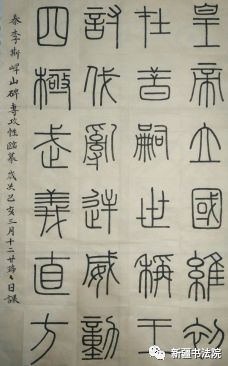 皇帝立國維初
在昔嗣世稱王
討伐亂逆威動
四極武義直方
秦李斯嶧山碑書臨摹歲次己亥三月十二日
新疆书法院